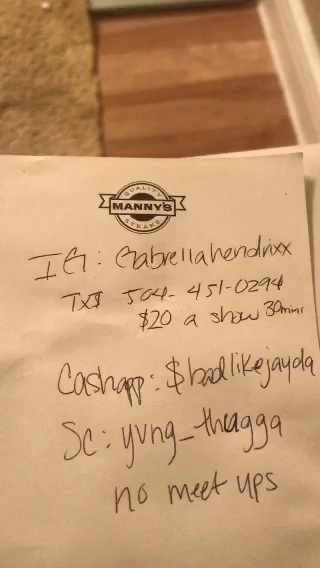 QUALITY
MANNY'S
STEAKS
IG: Gabrellahendrixx
TX$ 504-451-0294
$20 a show 30mins
Cashapp: $badlikejayda
Sc: yvng_thugga
no meet ups